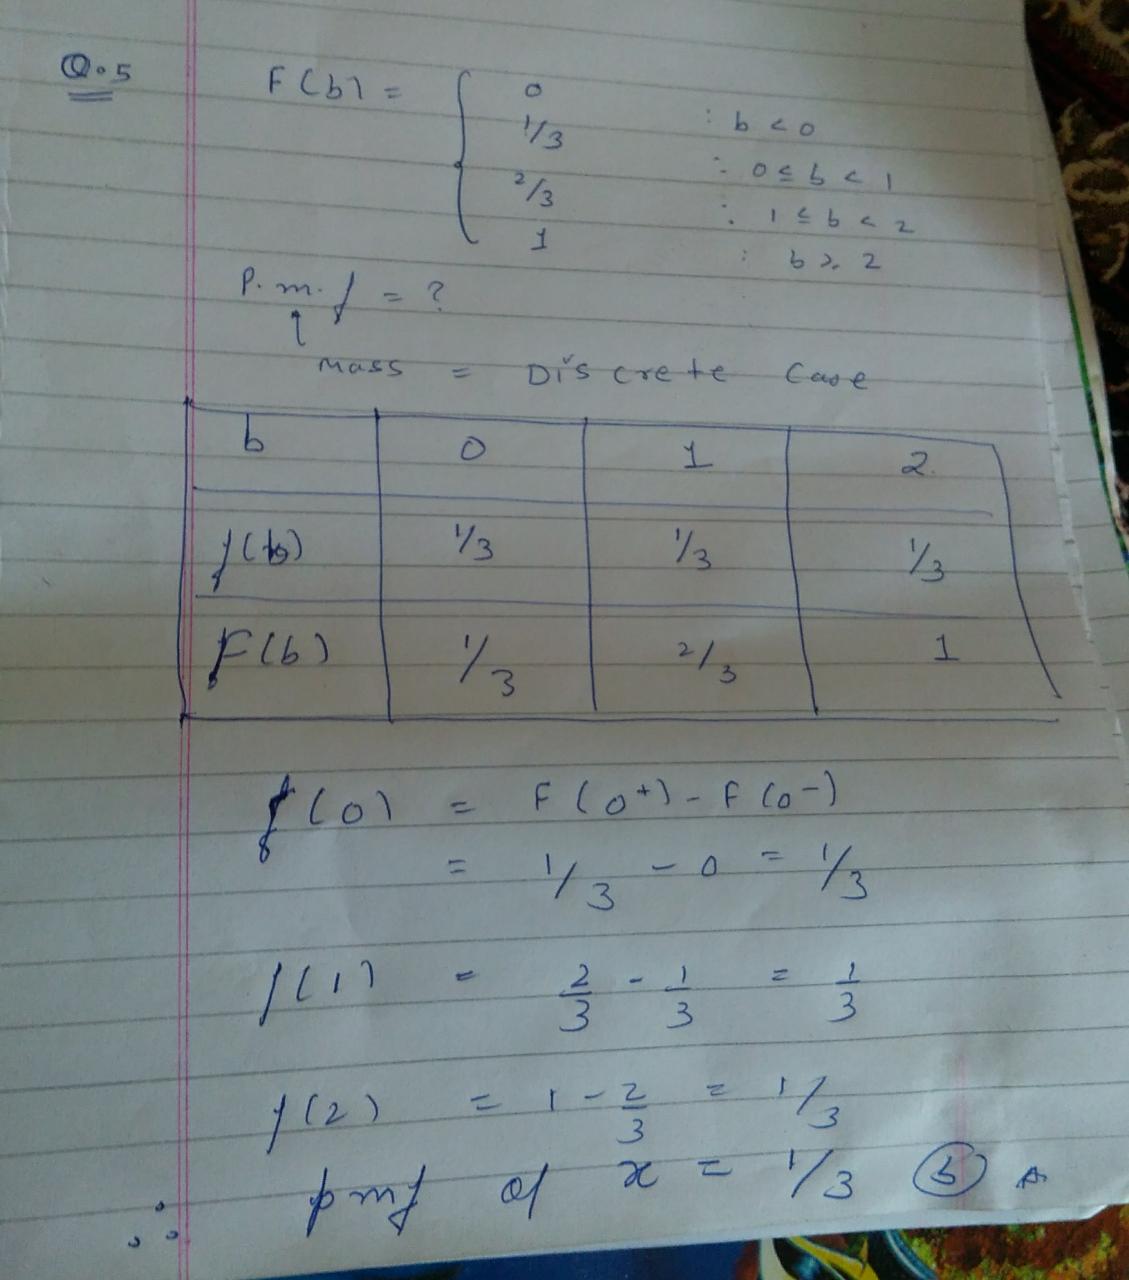 Q.5 F(b) = { 0 : b < 0
1/3 : 0 ≤ b < 1
2/3 : 1 ≤ b < 2
1 : b ≥ 2
P.m.f = ?
↑
Mass = Discrete Case
b 0 1 2
f(b) 1/3 1/3 1/3
F(b) 1/3 2/3 1
f(0) = F(0+) - F(0-)
= 1/3 - 0 = 1/3
f(1) = 2/3 - 1/3 = 1/3
f(2) = 1 - 2/3 = 1/3
∴ pmf of x = 1/3 (b) A